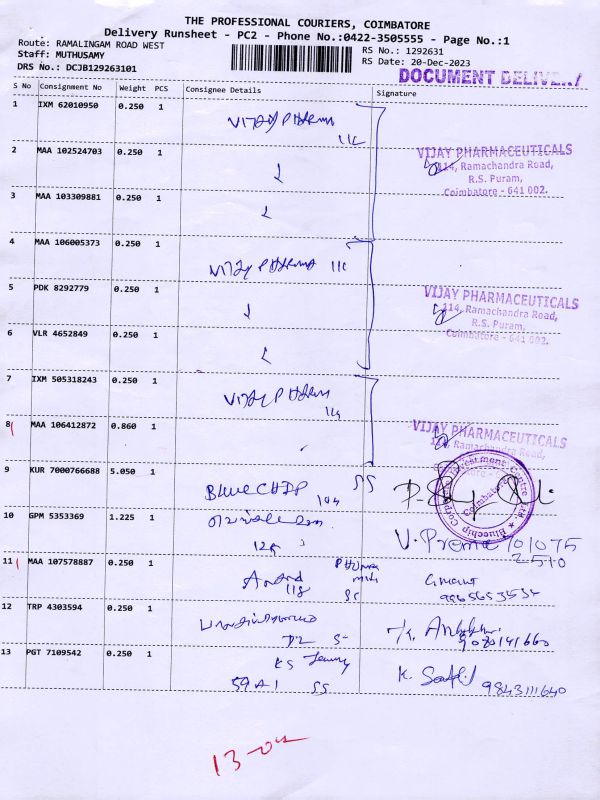 THE PROFESSIONAL COURIERS, COIMBATORE
Delivery Runsheet - PC2 - Phone No.:0422-3505555 - Page No.:1
Route: RAMALINGAM ROAD WEST
RS No.: 1292631
Staff: MUTHUSAMY
RS Date: 20-Dec-2023
DRS No.: DCJB129263101
DOCUMENT DELIVERY
S No Consignment No Weight PCS Consignee Details Signature
1 IXM 62010950 0.250 1
Vijay Pharma
114
2 MAA 102524703 0.250 1
VIJAY PHARMACEUTICALS
114, Ramachandra Road,
R.S. Puram,
Coimbatore - 641 002.
3 MAA 103309881 0.250 1
4 MAA 106005373 0.250 1
Vijay Pharma 114
5 PDK 8292779 0.250 1
VIJAY PHARMACEUTICALS
114, Ramachandra Road,
R.S. Puram,
Coimbatore - 641 002.
6 VLR 4652849 0.250 1
7 IXM 505318243 0.250 1
Vijay Pharma
114
8 MAA 106412872 0.860 1
VIJAY PHARMACEUTICALS
Ramachandra Road,
9 KUR 7000766688 5.050 1
BLUE CHIP
SS
Bluechip Corporate Investment Centre
Coimbatore
10 GPM 5353369 1.225 1
V. Prema
11 MAA 107578887 0.250 1
Anand
118
SS
12 TRP 4303594 0.250 1
9080141660
13 PGT 7109542 0.250 1
KS
59 A1 SS
K.
9843111640
13-